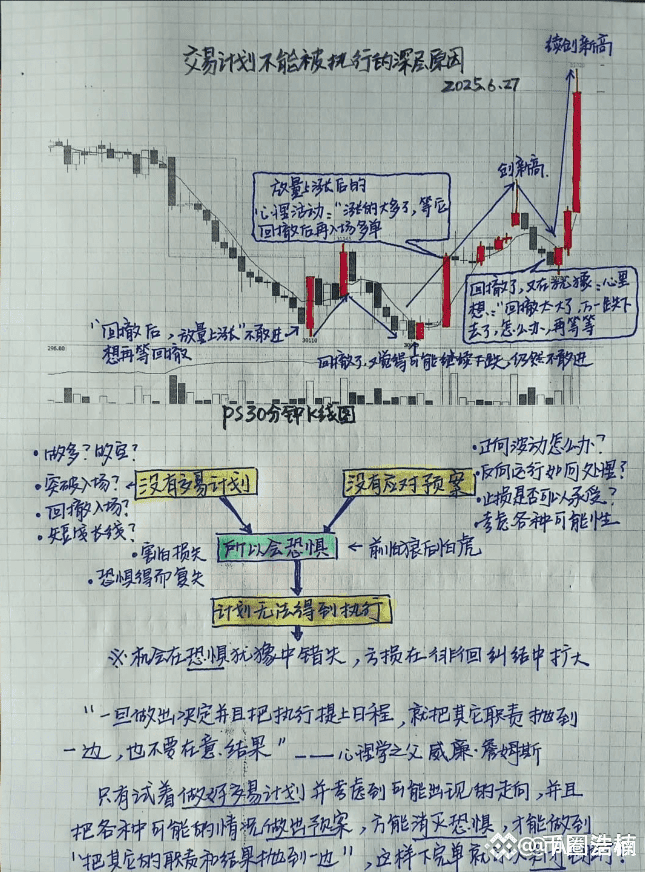 续创新高
交易计划不能被执行的深层原因
2025.6.27
放量上涨后的
心理活动:"涨的太多了,等它
回撤后再入场多单
创新高
回撤了,又在犹豫:心里
想:"回撤太大了,万一跌下
去了,怎么办,再等等
"回撤后,放量上涨"不敢进
想再等回撤
30110
298.80
回撤了,又觉得可能继续下跌,仍然不敢进
PS30分钟K线图
·做多?做空?
·突破入场?
·回撤入场?
·短线长线?
没有交易计划
没有应对预案
·正向波动怎么办?
·反向运行如何处理?
·止损是否可以承受?
·考虑各种可能性
·害怕损失
·恐惧得而复失
所以会恐惧
←前怕狼后怕虎
计划无法得到执行
※机会在恐惧犹豫中错失,亏损在徘徊纠结中扩大
"一旦做出决定并且把执行提上日程,就把其它职责抛到
一边,也不要在意结果"——心理学之父 威廉·詹姆斯
只有试着做好交易计划并考虑到可能出现的走向,并且
把各种可能的情况做出预案,方能消灭恐惧,才能做到
"把其它的职责和结果抛到一边",这样下完单就
币圈浩楠